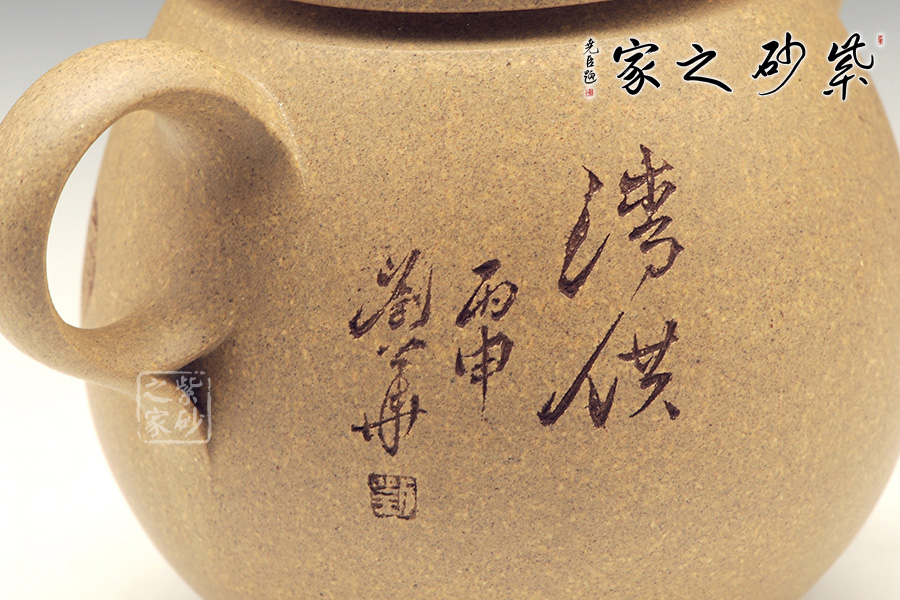 紫砂之家
尧臣题
清供
丙申
刘华
紫砂之家